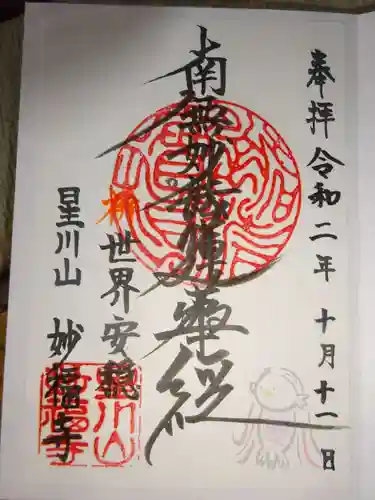 奉拝 令和二年 十月十一日
南無妙法蓮華経
祈 世界安穏
星川山 妙福寺